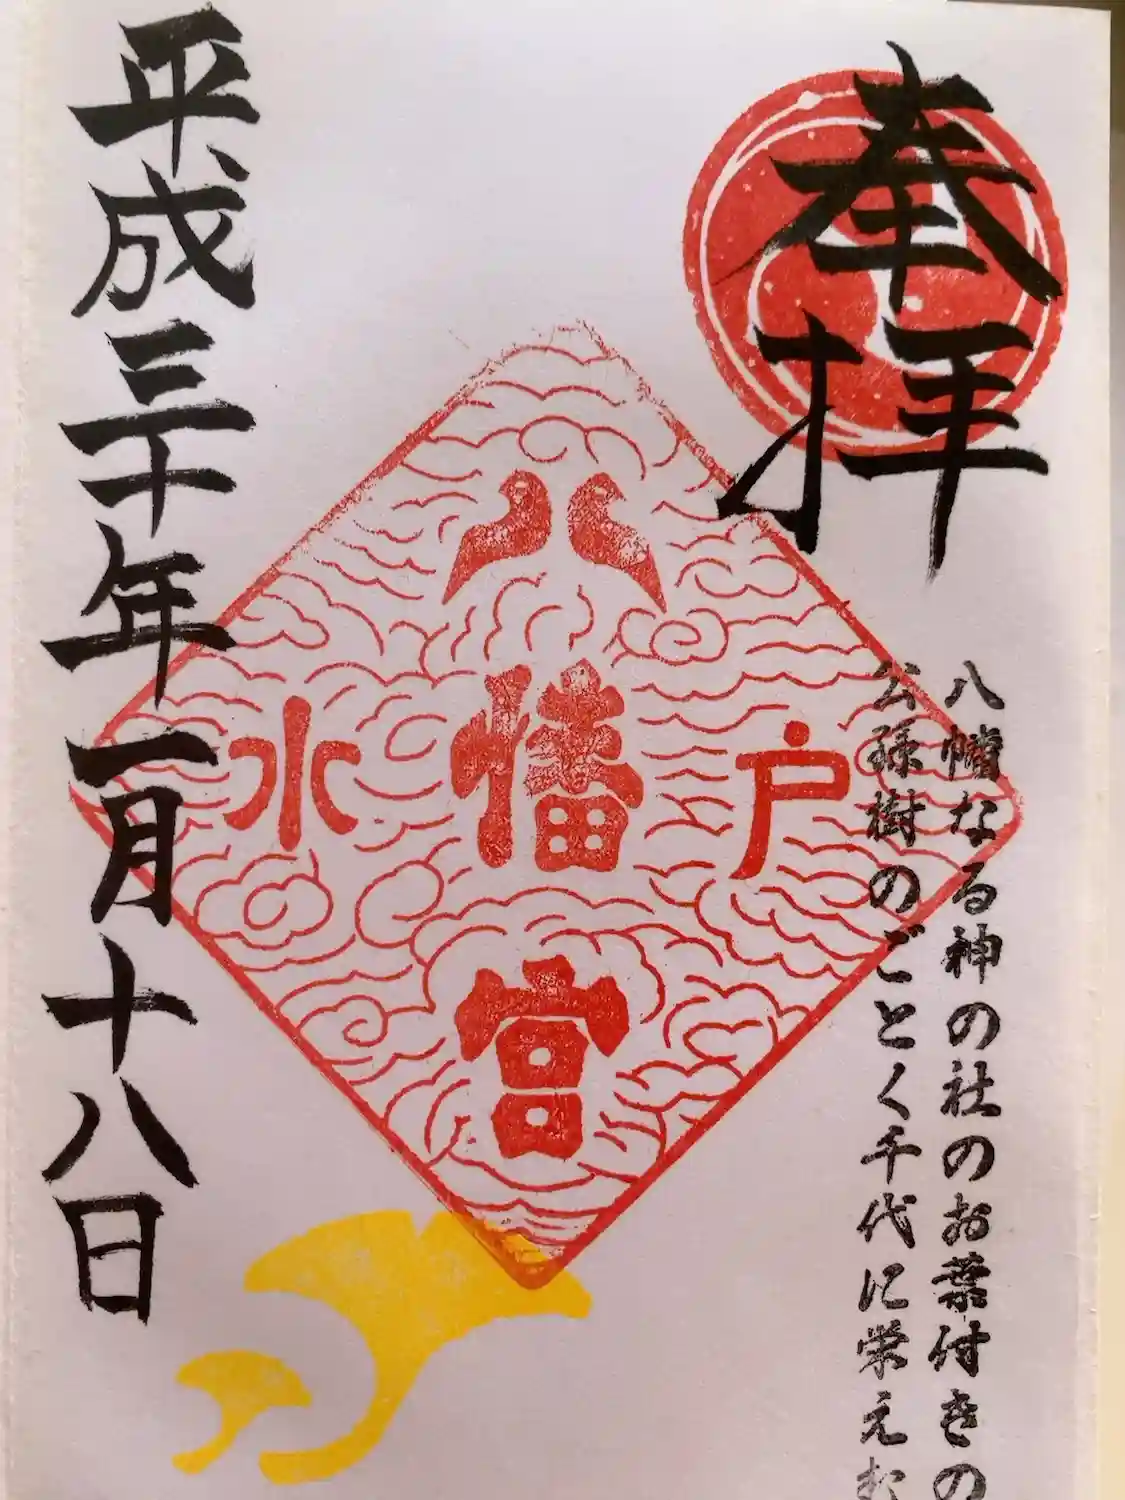 奉拝
八幡なる神の社のお葉付きの
公孫樹のごとく千代に栄えむ
水戸
八幡宮
平成三十年一月十八日